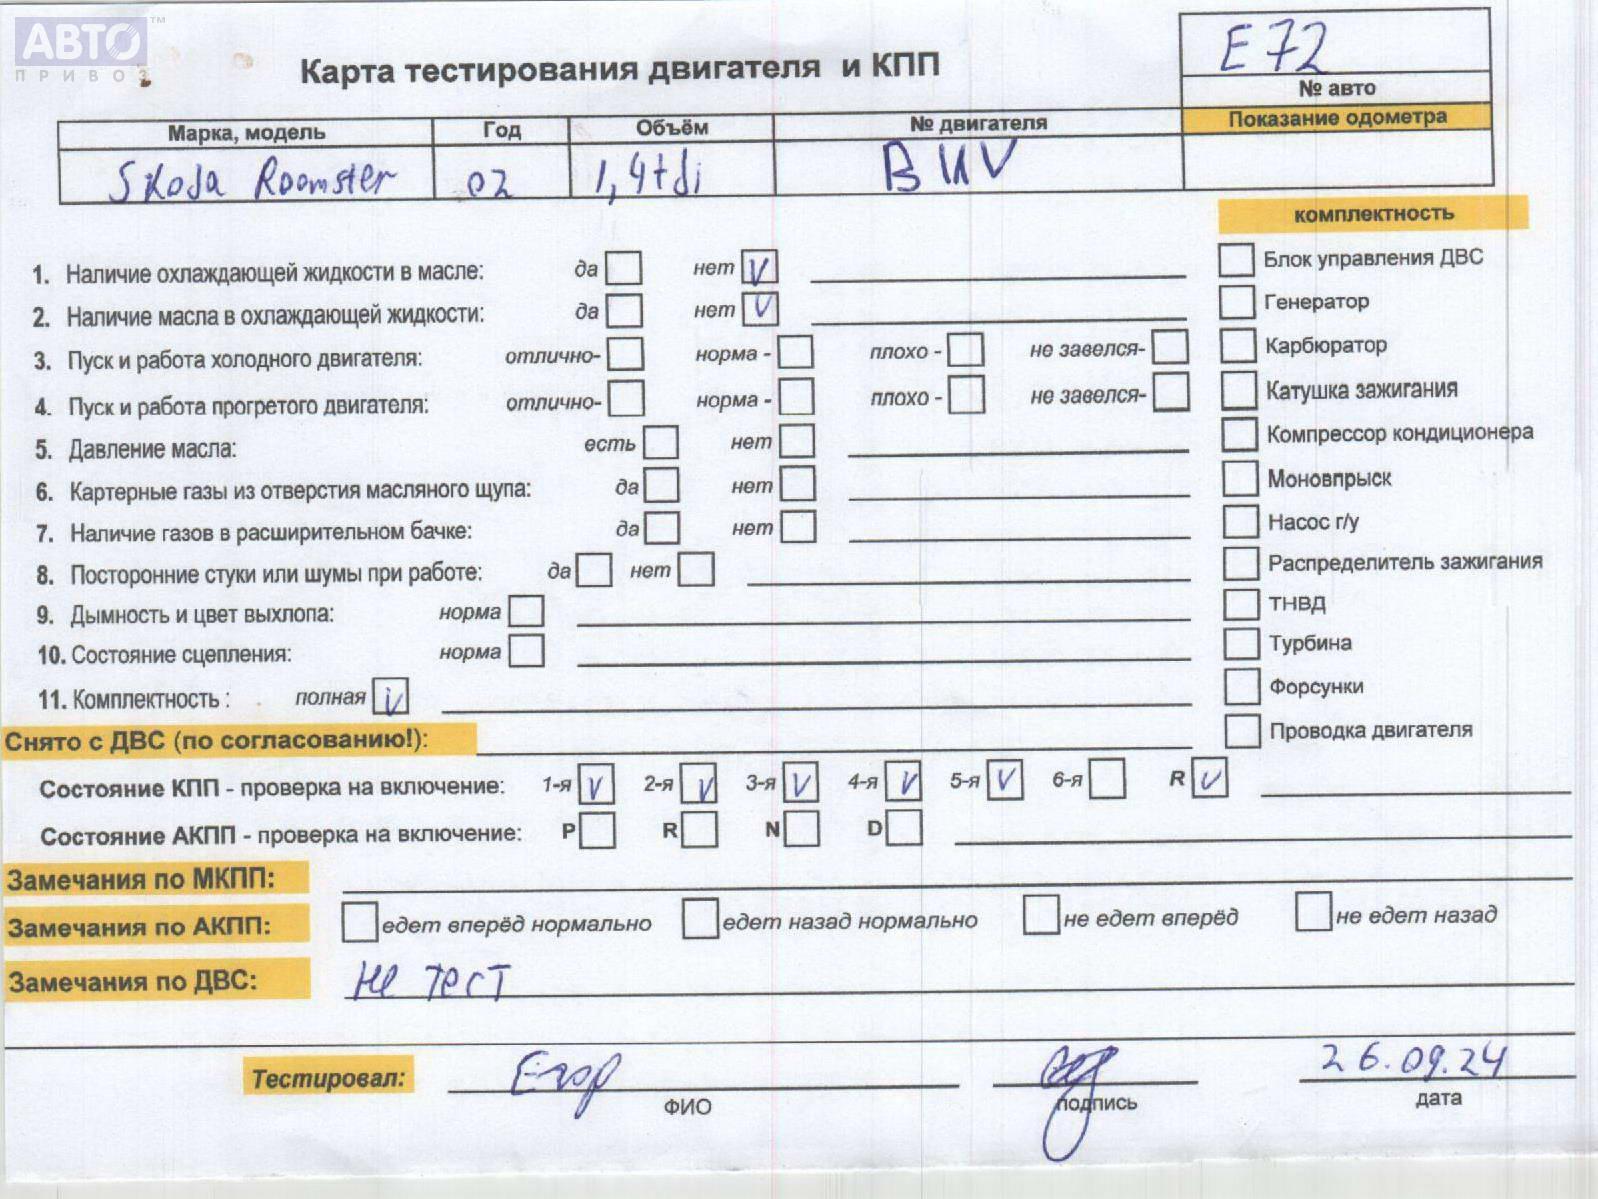 АВТО™
ПРИВОЗ
Карта тестирования двигателя и КПП
E72
№ авто
Марка, модель Год Объём № двигателя Показание одометра
Skoda Roomster 02 1,4tdi BUV
комплектность
1. Наличие охлаждающей жидкости в масле: да нет V
Блок управления ДВС
2. Наличие масла в охлаждающей жидкости: да нет V
Генератор
3. Пуск и работа холодного двигателя: отлично- норма - плохо - не завелся-
Карбюратор
4. Пуск и работа прогретого двигателя: отлично- норма - плохо - не завелся-
Катушка зажигания
5. Давление масла: есть нет
Компрессор кондиционера
6. Картерные газы из отверстия масляного щупа: да нет
Моновпрыск
7. Наличие газов в расширительном бачке: да нет
Насос г/у
8. Посторонние стуки или шумы при работе: да нет
Распределитель зажигания
9. Дымность и цвет выхлопа: норма
ТНВД
10. Состояние сцепления: норма
Турбина
11. Комплектность : полная V
Форсунки
Снято с ДВС (по согласованию!):
Проводка двигателя
Состояние КПП - проверка на включение: 1-я V 2-я V 3-я V 4-я V 5-я V 6-я R V
Состояние АКПП - проверка на включение: P R N D
Замечания по МКПП:
Замечания по АКПП: едет вперёд нормально едет назад нормально не едет вперёд не едет назад
Замечания по ДВС: не тест
Тестировал: Егор 26.09.24
ФИО подпись дата